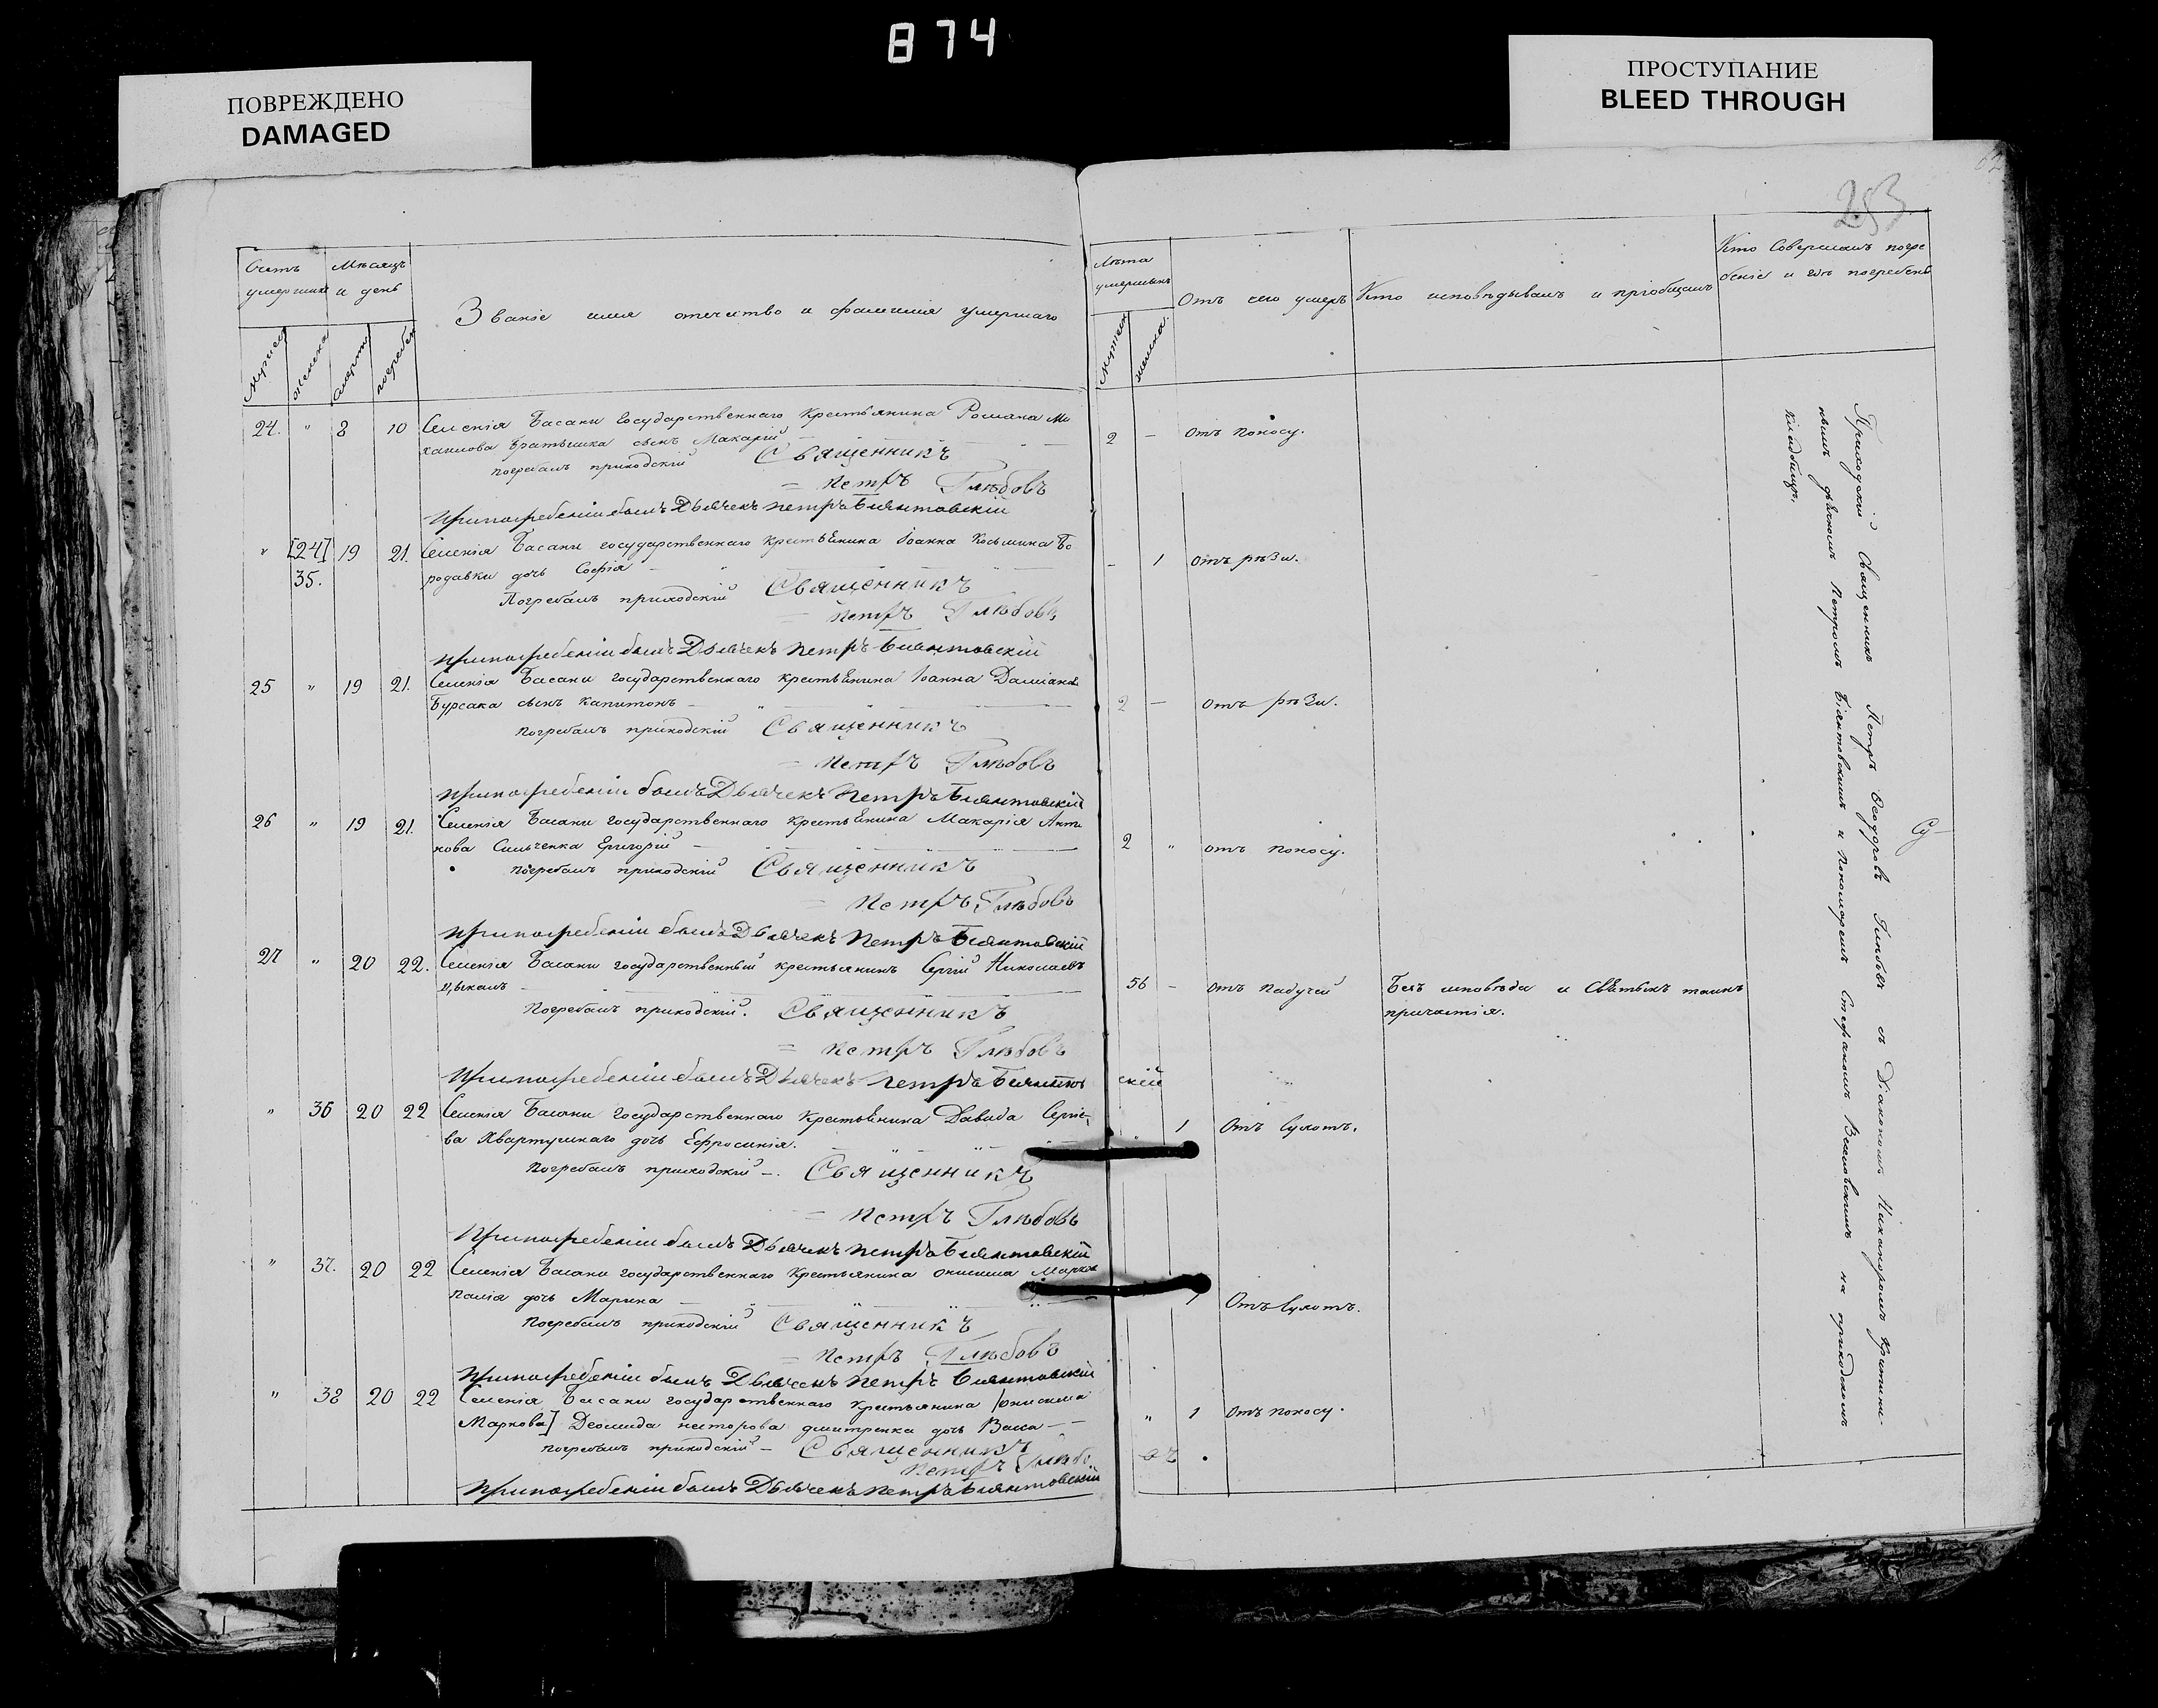 874
ПОВРЕЖДЕНО
DAMAGED
ПРОСТУПАНИЕ
BLEED THROUGH
253
Счетъ умершихъ
Мѣсяцъ и день
Званіе имя отечество и фамилія умершаго
Лѣта умершихъ
Отъ чего умеръ
Кто исповѣдывалъ и пріобщалъ
Кто совершалъ погребеніе и гдѣ погребенъ
смерти
24. " 8 10 Селенія Басани государственнаго крестьянина Романа Ми
хаилова Братышка сынъ Макарій 2 — Отъ поносу.
погребалъ приходскій Священникъ
Петръ Глѣбовъ
При погребеніи былъ Дьячекъ Петръ Біянтовскій
" [24] 19 21. Селенія Басани государственнаго крестьянина Іоанна Косьмина Бо
35.
родавки дочь Софія - 1 отъ рѣзи.
Погребалъ приходскій Священникъ
Петръ Глѣбовъ
При погребеніи былъ Дьячекъ Петръ Біянтовскій
25 " 19 21. Селенія Басани государственнаго крестьянина Іоанна Даміанов
Бурсака сынъ Капитонъ 2 — отъ рѣзи.
погребалъ приходскій Священникъ
Петръ Глѣбовъ
При погребеніи былъ Дьячекъ Петръ Біянтовскій
26 " 19 21. Селенія Басани государственнаго крестьянина Макарія
Григорій 2 " отъ поносу.
погребалъ приходскій Священникъ
Петръ Глѣбовъ
При погребеніи былъ Дьячекъ Петръ Біянтовскій
27 " 20 22. Селенія Басани государственный крестьянинъ Сергій Николаевъ
56 - отъ падучей Безъ исповѣди и святыхъ таинъ
причастія.
Погребалъ приходскій. Священникъ
Петръ Глѣбовъ
При погребеніи былъ Дьячекъ Петръ Біянтов скій
" 36 20 22 Селенія Басани государственнаго крестьянина Давида Сергіе-
ва Квартушнаго дочь Ефросинія. " 1 Отъ сухотъ.
Погребалъ приходскій —. Священникъ
Петръ Глѣбовъ
При погребеніи былъ Дьячекъ Петръ Біянтовскій
" 37. 20 22 Селенія Басани государственнаго крестьянина Онисима Марков
Палія дочь Марина 1 Отъ сухотъ.
Погребалъ приходскій Священникъ
Петръ Глѣбовъ
При погребеніи былъ Дьячекъ Петръ Біянтовскій
" 38 20 22 Селенія Басани государственнаго крестьянина [Онисима
Маркова] Деомида Несторова Дмитренка дочь Васса " 1 отъ поносу.
погребалъ приходскій — Священникъ
Петръ Глѣбо
При погребеніи былъ Дьячекъ Петръ Біянтовскій
Приходскій Священникъ Петръ Ѳеодоровъ Глѣбовъ съ Діакономъ Никаноромъ
дьячкомъ Петромъ Біянтовскимъ и пономаремъ Стефаномъ на приходскомъ
кладбищѣ.